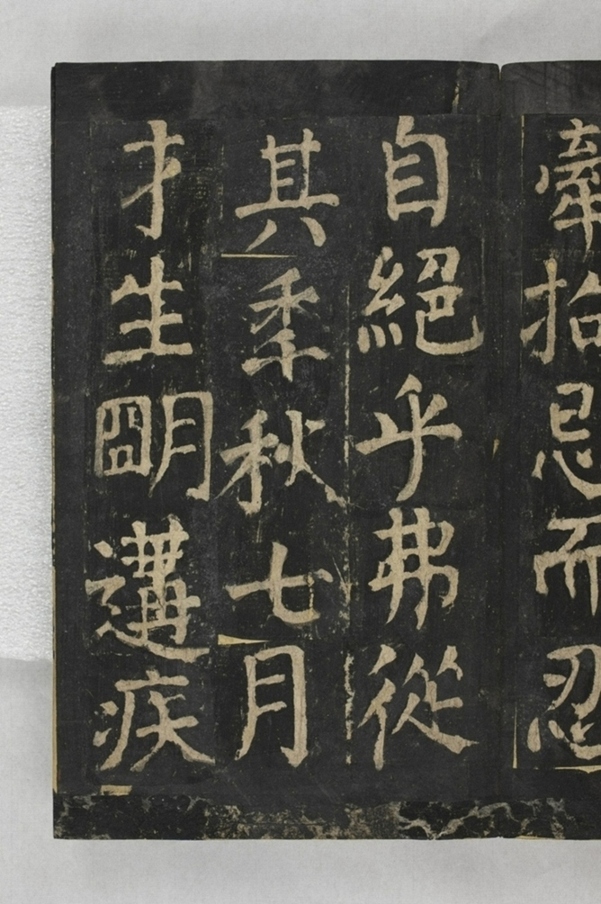 牽拘忌而忍
自絕乎弗從
其秊秋七月
才生朙遘疾